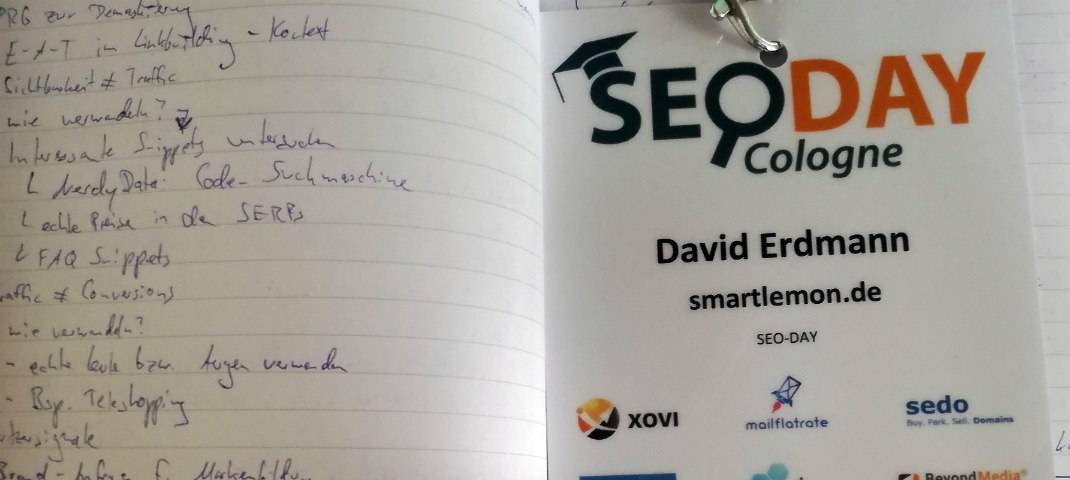 PRG zur Demaskierung
E-A-T in Linkbuilding - Kontext
Sichtbarkeit ≠ Traffic
wie verwandeln?
Interessante Snippets untersuchen
NerdyData: Code-Suchmaschine
echte Preise in den SERPs
FAQ Snippets
Traffic ≠ Conversions
wie verwandeln?
- echte Leute bzw. Augen verwenden
- Bsp. Teleshopping
Brand-
SEODAY
Cologne
David Erdmann
smartlemon.de
SEO-DAY
XOVI
mailflatrate
sedo
Buy. Park. Sell. Domains
BeyondMedia